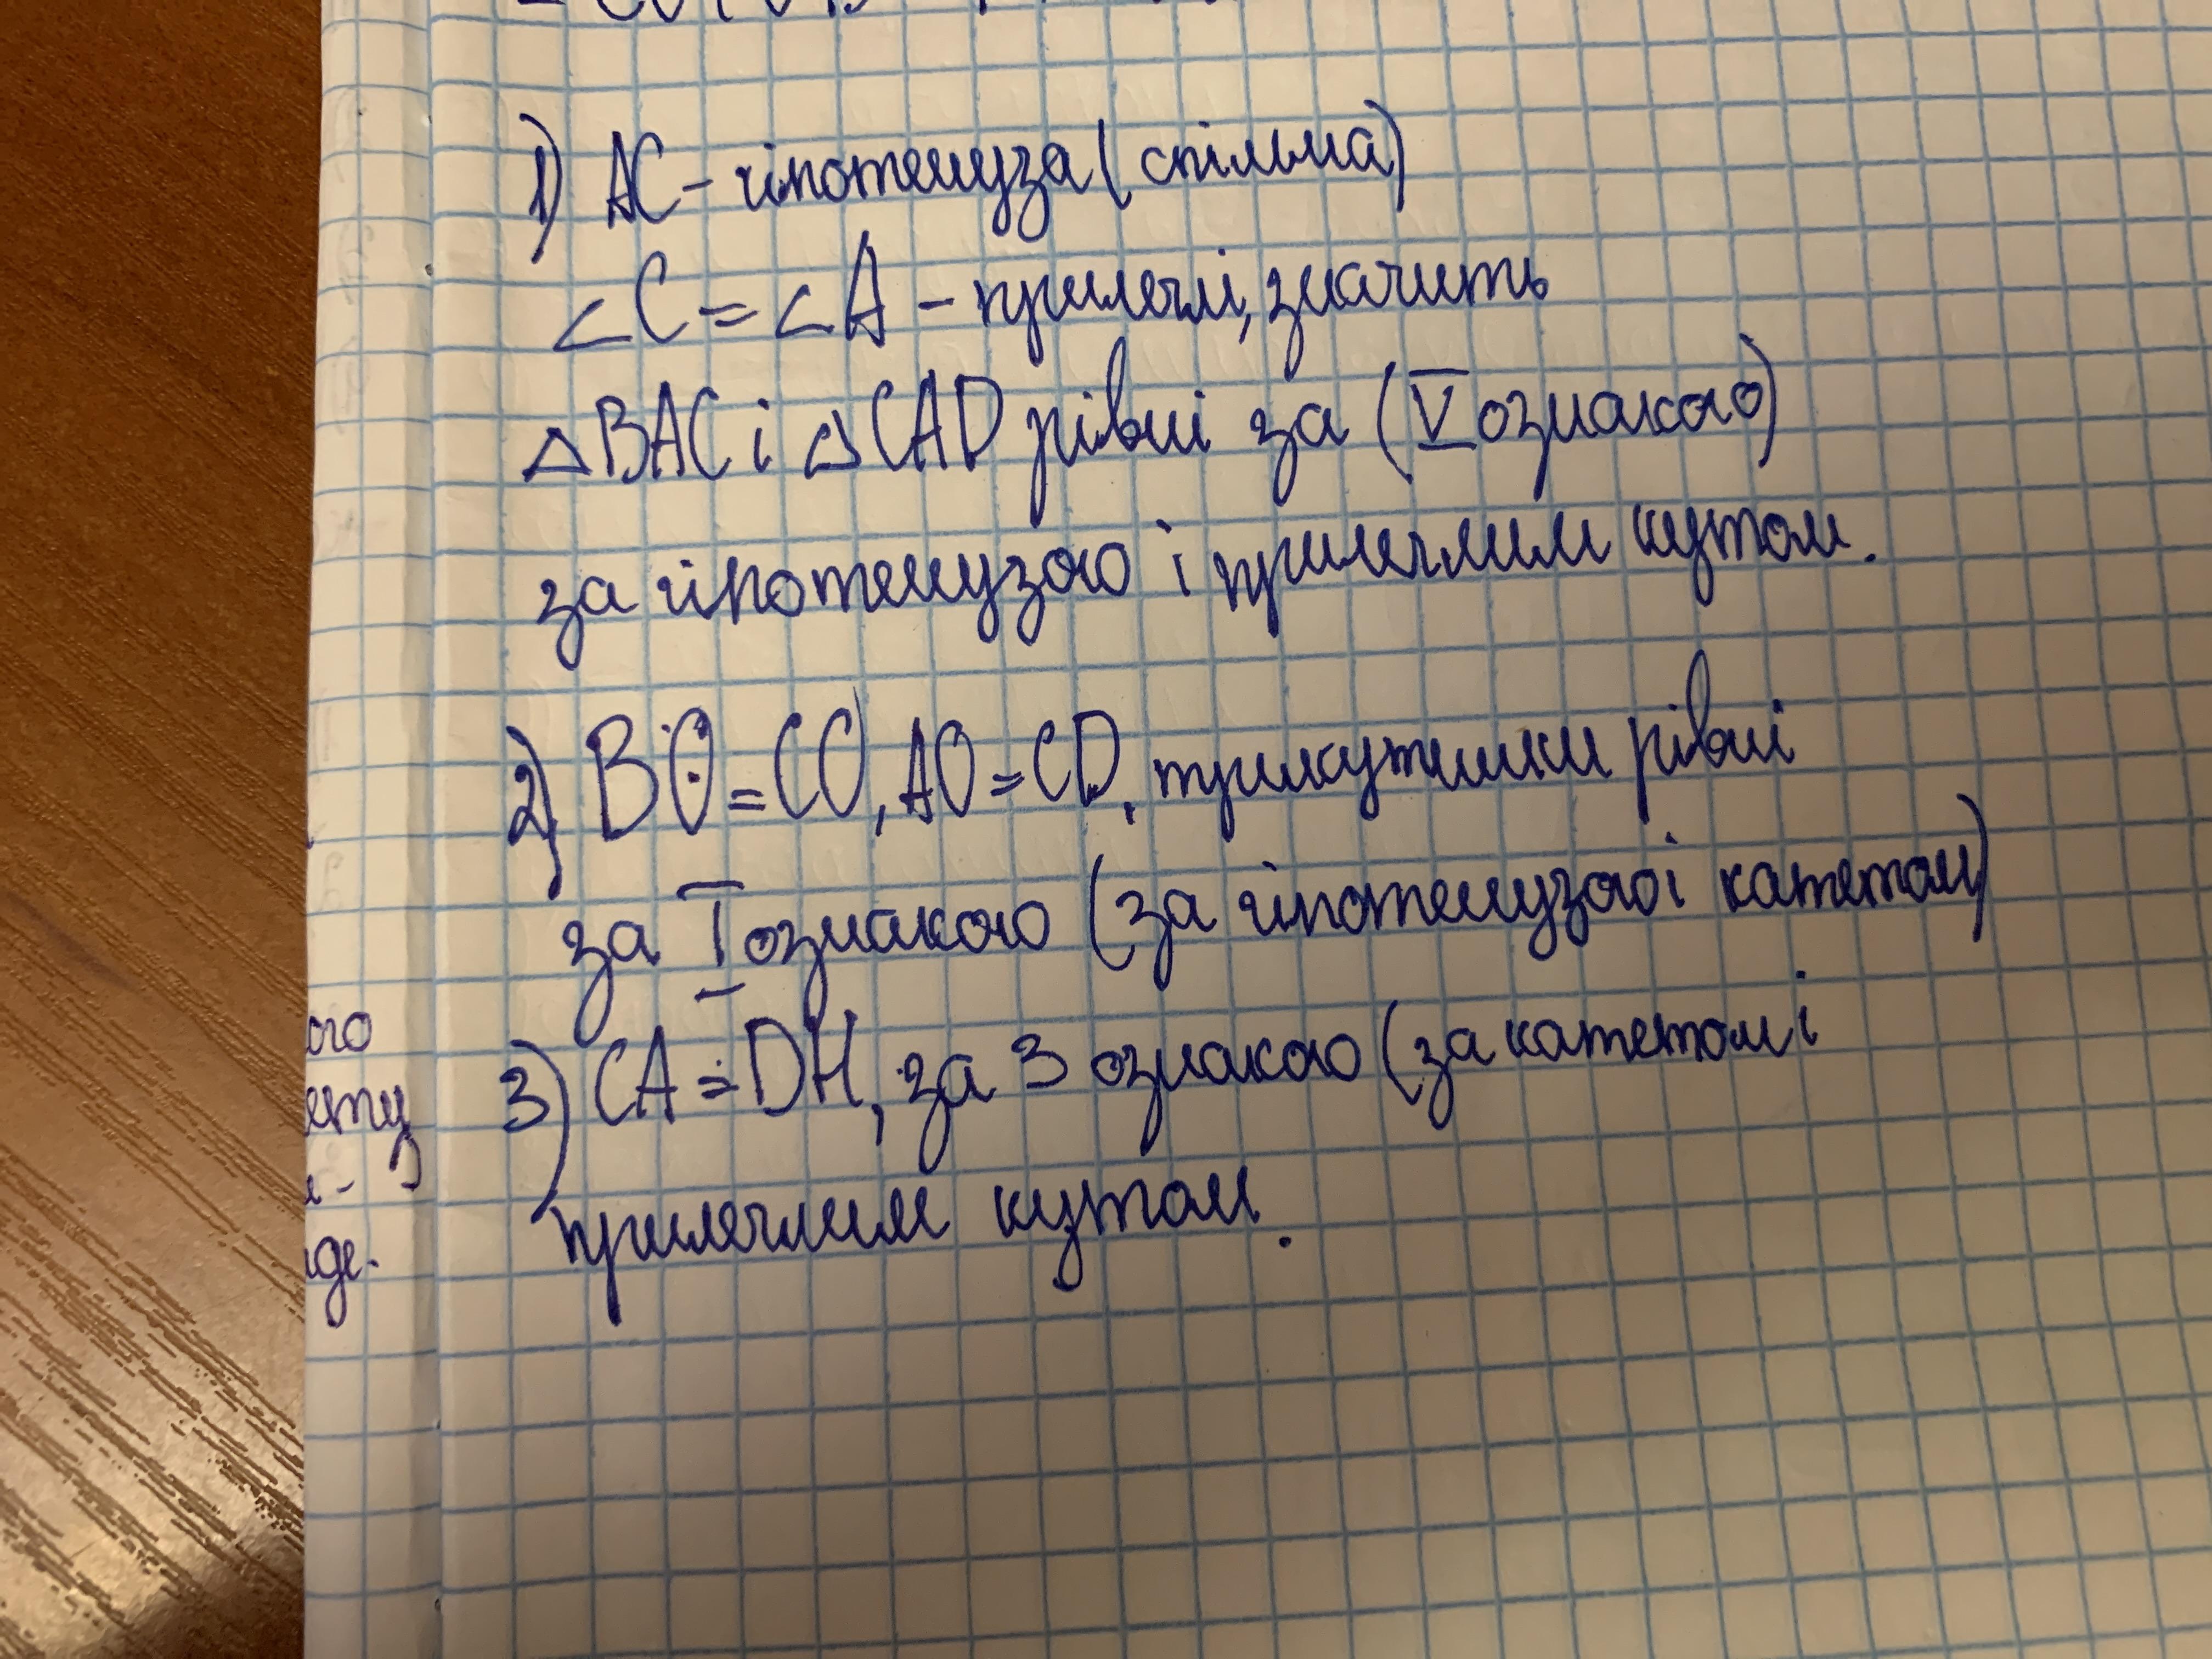 1) AC - гіпотенуза (спільна)
∠C = ∠A - прилеглі, значить
△BAC і △CAD рівні за (V ознакою)
за гіпотенузою і прилеглим кутом.
2) BO = CO, AO = CD, трикутники рівні
за I ознакою (за гіпотенузою і катетом)
ого
3) CA = DH, за 3 ознакою (за катетом і
прилеглим кутом.